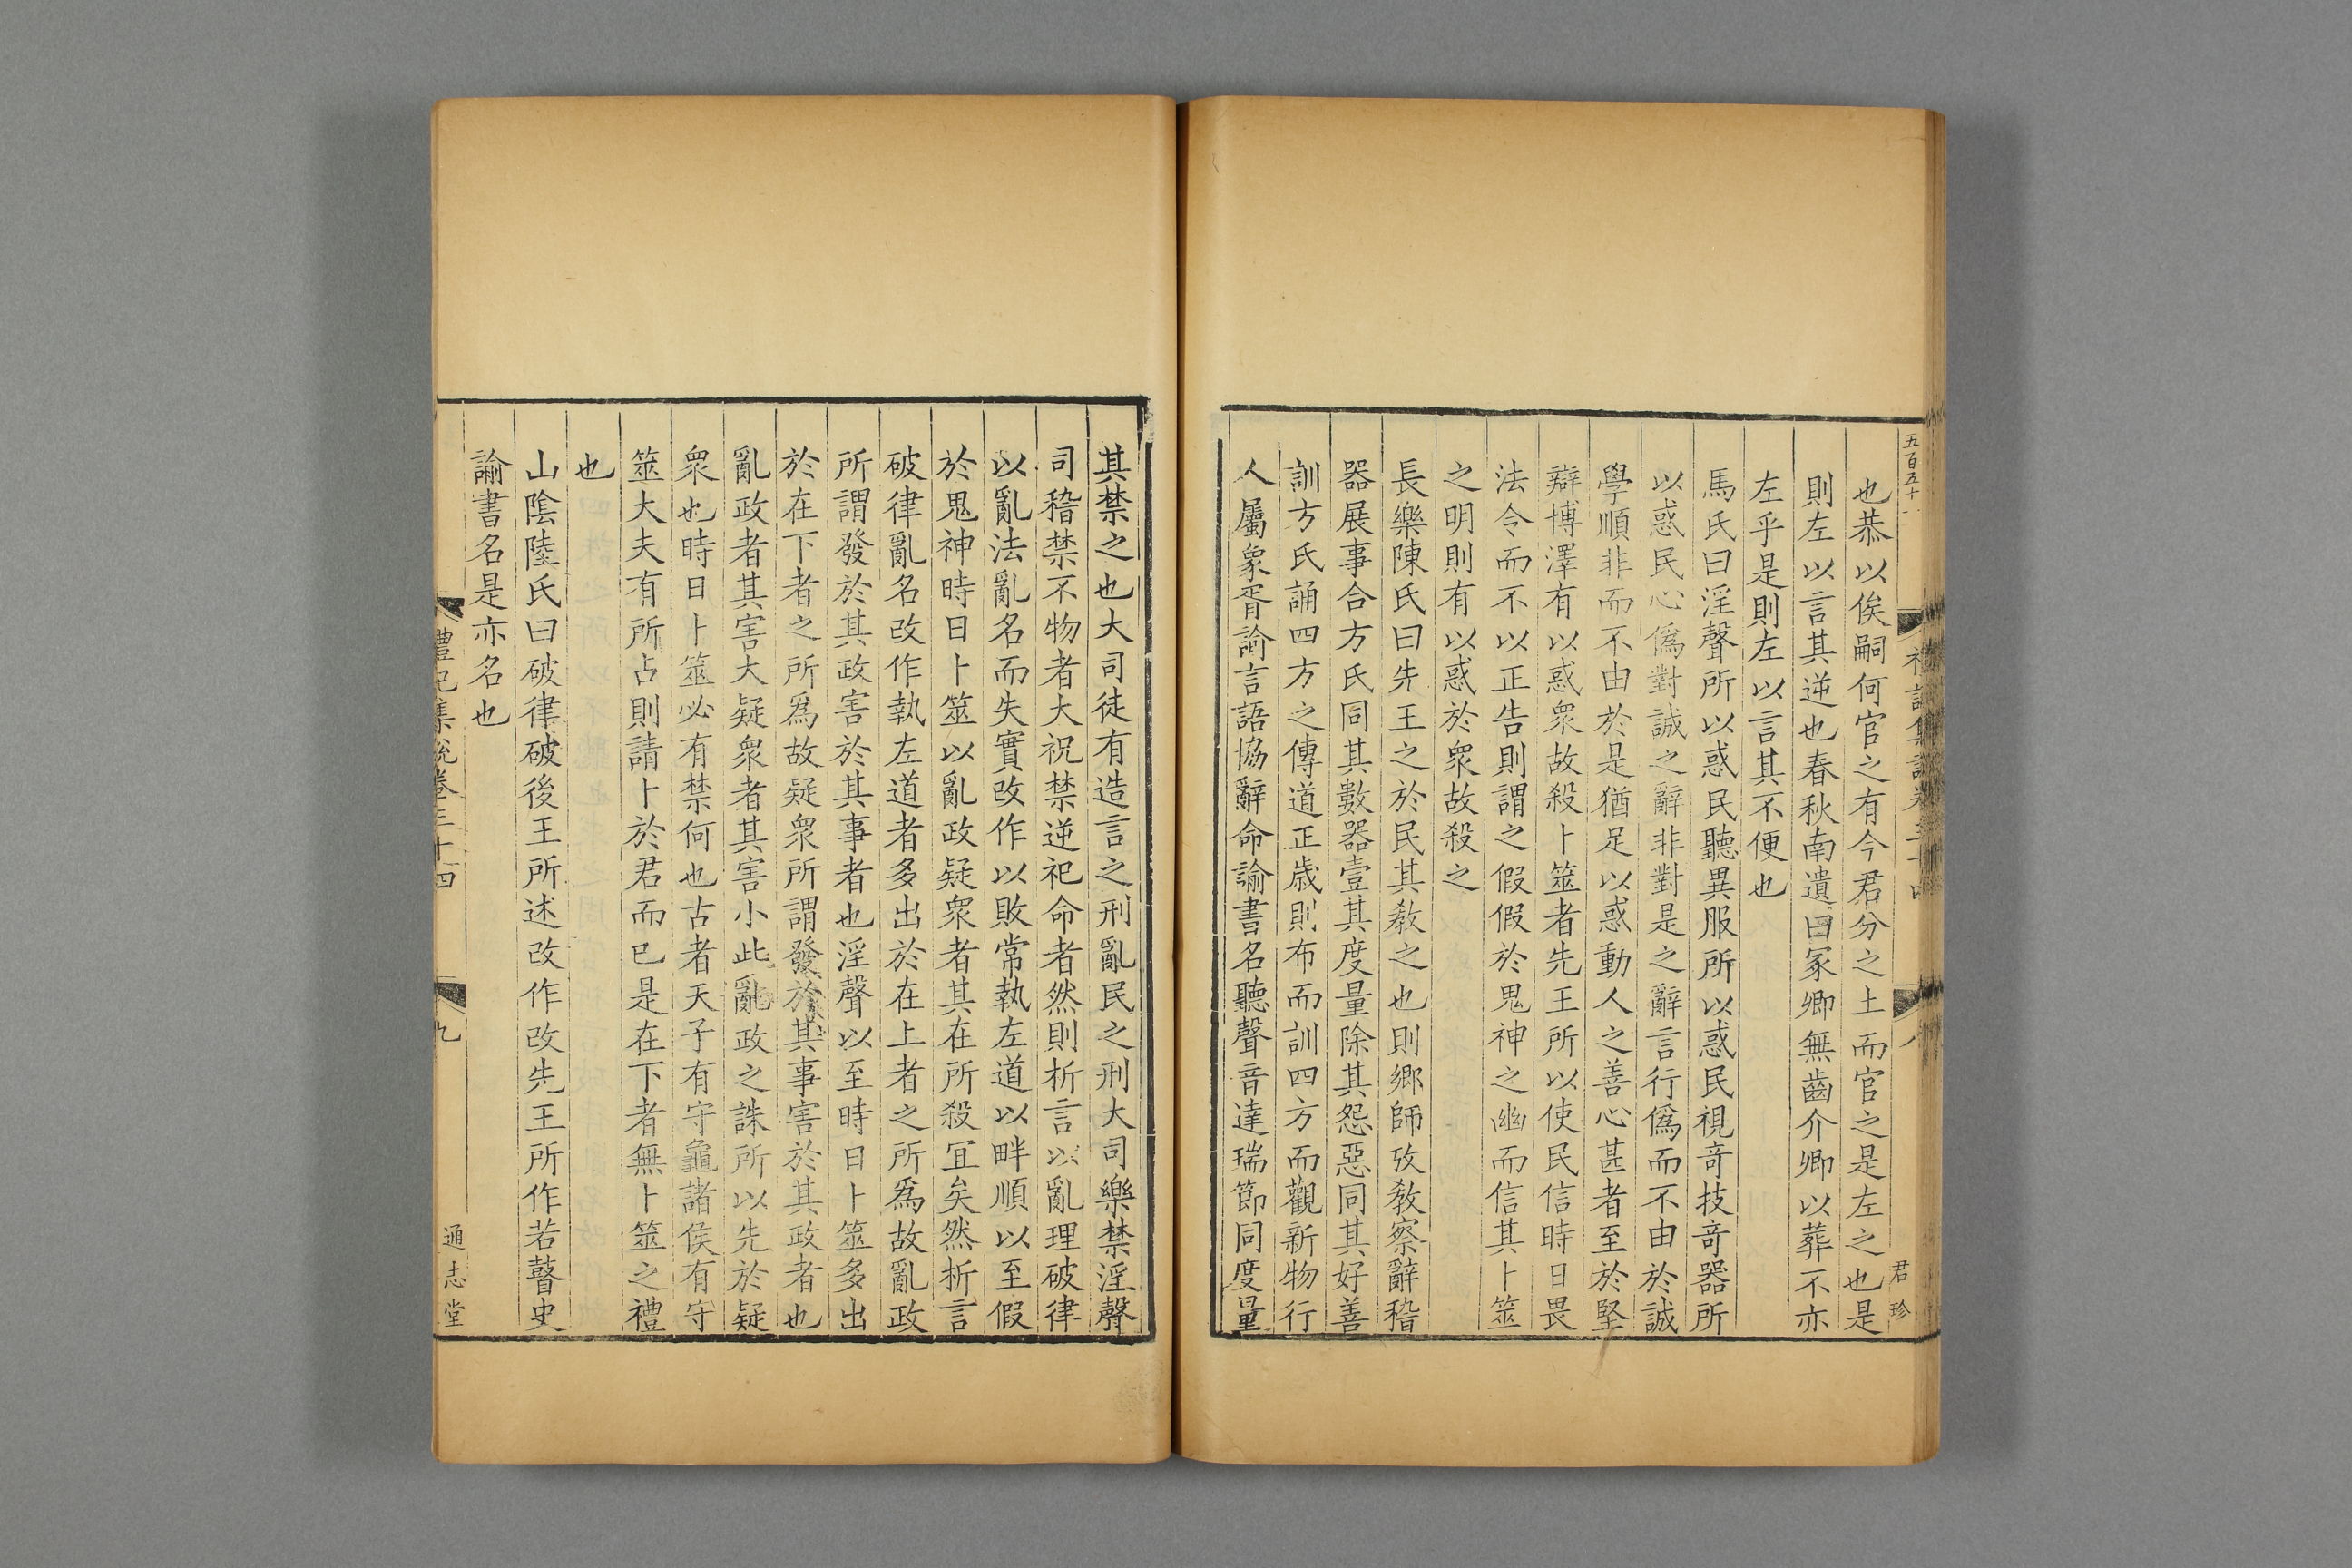 五百五十
禮記集說卷三十四
八
君珍
也恭以俟嗣何官之有今君分之土而官之是左之也是
則左以言其逆也春秋南遺曰冢卿無齒介卿以葬不亦
左乎是則左以言其不便也
馬氏曰淫聲所以惑民聽異服所以惑民視竒技竒器所
以惑民心僞對誠之辭非對是之辭言行僞而不由於誠
學順非而不由於是猶足以惑動人之善心甚者至於堅
辯博澤有以惑衆故殺卜筮者先王所以使民信時日畏
法令而不以正告則謂之假假於鬼神之幽而信其卜筮
之明則有以惑於衆故殺之
長樂陳氏曰先王之於民其教之也則鄉師攷教察辭稽
器展事合方氏同其數器壹其度量除其怨惡同其好善
訓方氏誦四方之傳道正歲則布而訓四方而觀新物行
人屬象胥諭言語協辭命諭書名聽聲音達瑞節同度量
其禁之也大司徒有造言之刑亂民之刑大司樂禁淫聲
司稽禁不物者大祝禁逆祀命者然則析言以亂理破律
以亂法亂名而失實改作以敗常執左道以畔順以至假
於鬼神時日卜筮以亂政疑衆者其在所殺冝矣然析言
破律亂名改作執左道者多出於在上者之所爲故亂政
所謂發於其政害於其事者也淫聲以至時日卜筮多出
於在下者之所爲故疑衆所謂發於其事害於其政者也
亂政者其害大疑衆者其害小此亂政之誅所以先於疑
衆也時日卜筮必有禁何也古者天子有守龜諸侯有守
筮大夫有所占則請卜於君而已是在下者無卜筮之禮
也
山陰陸氏曰破律破後王所述改作改先王所作若瞽史
諭書名是亦名也
禮記集說卷三十四
九
通志堂